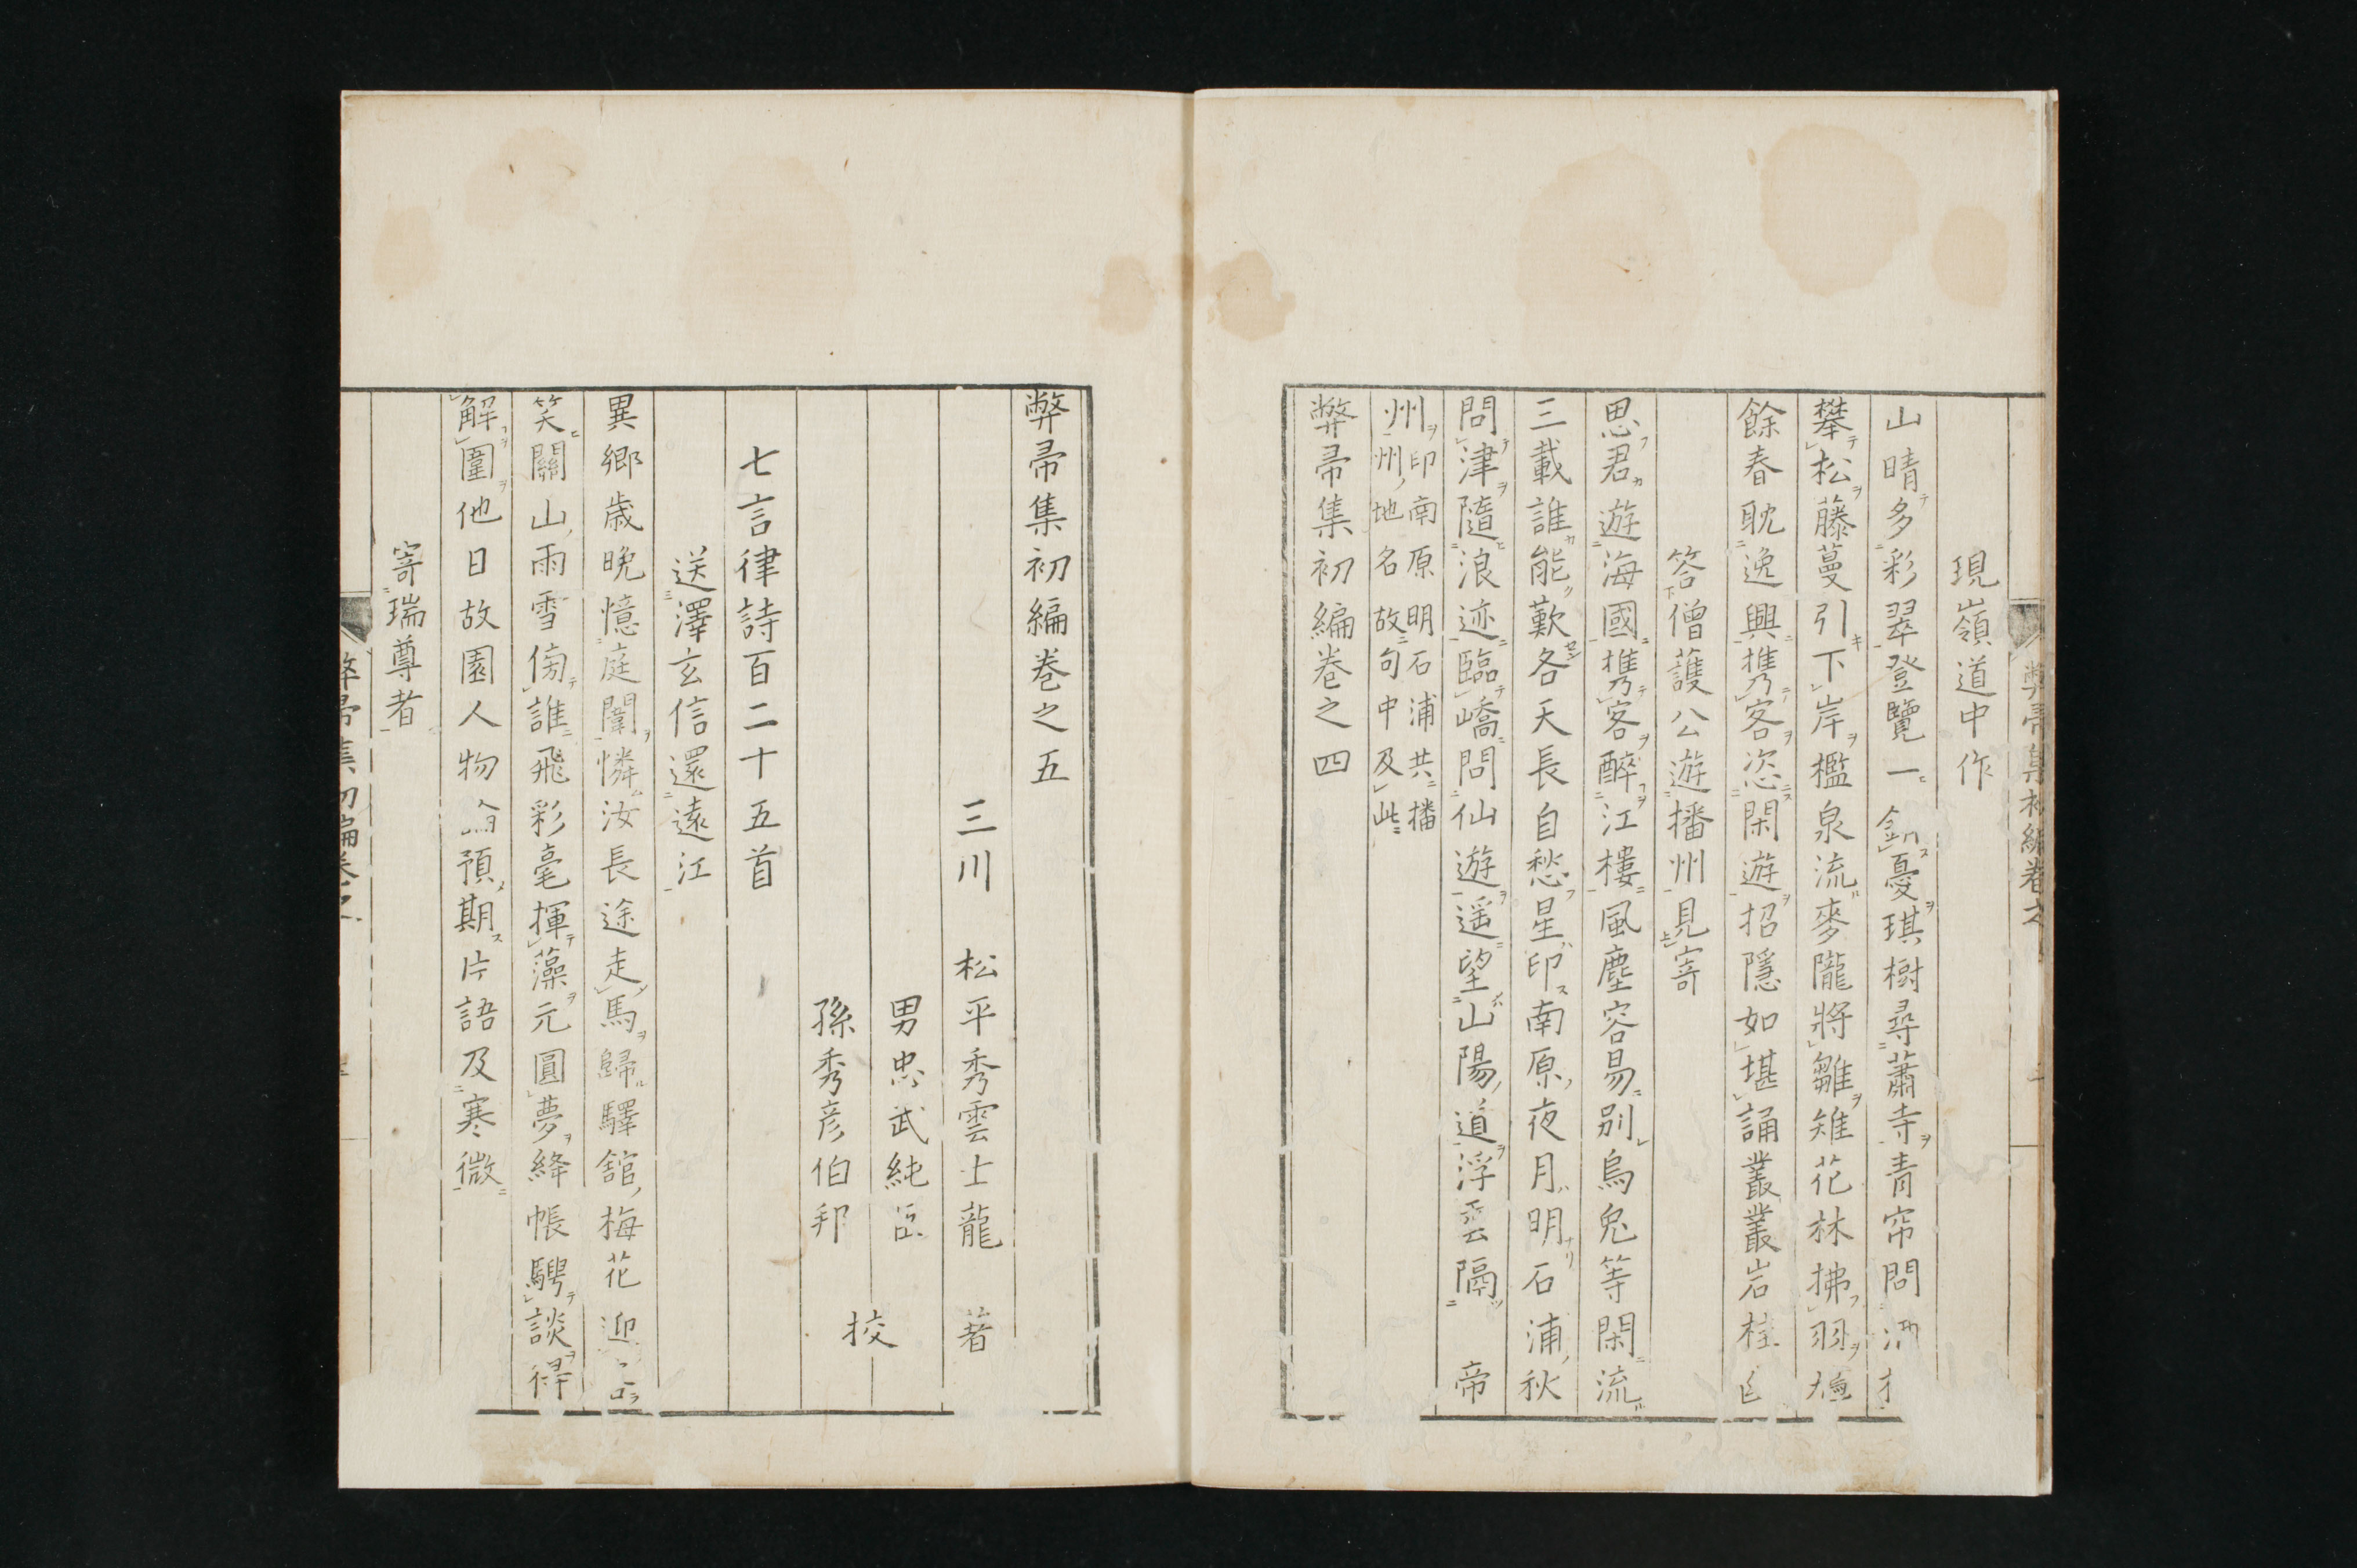 現嶺道中作
山晴多彩翠登覽一 憂琪樹尋蕭寺青帘問
攀松藤蔓引下岸檻泉流麥隴將雛雉花林拂羽
餘春耽逸興携客恣閑遊招隱如堪誦叢叢岩桂
答僧護公遊播州見寄
思君遊海國携客醉江樓風塵容易別烏兔等閑流
三載誰能歎各天長自愁星印南原夜月明石浦秋
問津隨浪迹臨嶠問仙遊遥望山陽道浮雲隔 帝
州印南原明石浦共播
州地名故句中及此
弊帚集初編卷之四
弊帚集初編卷之五
三川 松平秀雲士龍 著
男忠武純臣
孫秀彦伯邦
挍
七言律詩百二十五首
送澤玄信還遠江
異鄉歳晩憶庭闈憐汝長途走馬歸驛舘梅花迎
笑關山雨雪傍誰飛彩毫揮藻元圓夢絳帳騁談得
解圍他日故園人物論預期片語及寒微
寄瑞尊者
弊帚集初編卷之